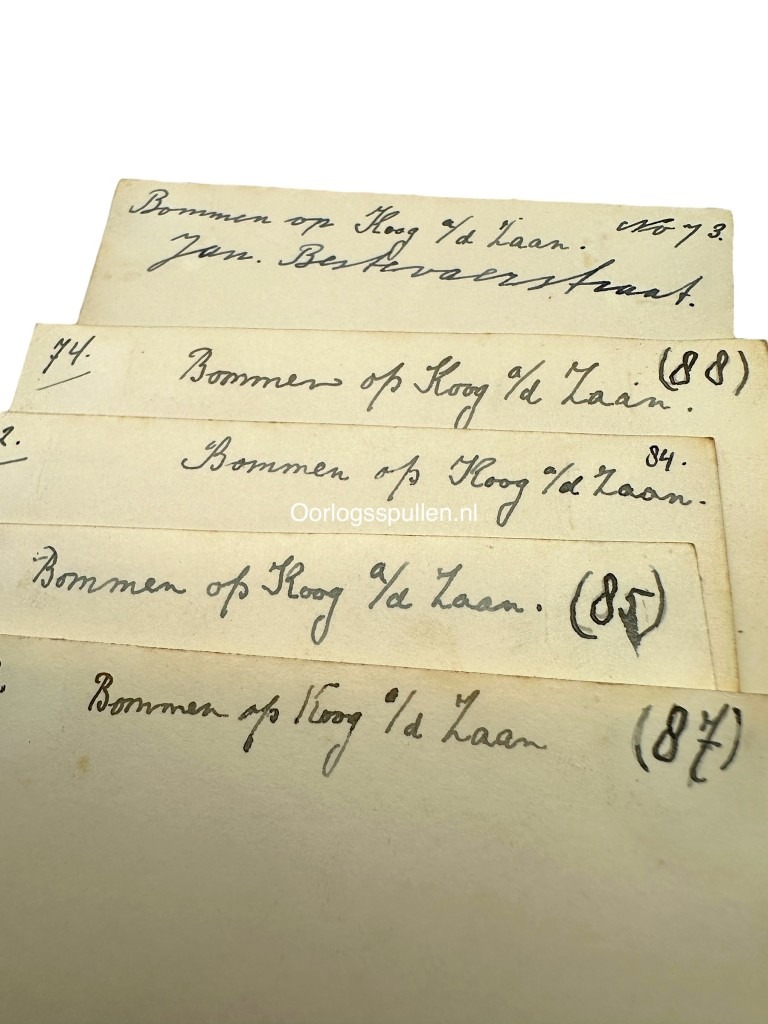 Bommen op Koog a/d Zaan. No 73.
Jan. Bestevaerstraat.
74. Bommen op Koog a/d Zaan. (88)
2. Bommen op Koog a/d Zaan. 84.
Oorlogsspullen.nl
Bommen op Koog a/d Zaan. (85)
Bommen op Koog a/d Zaan (87)